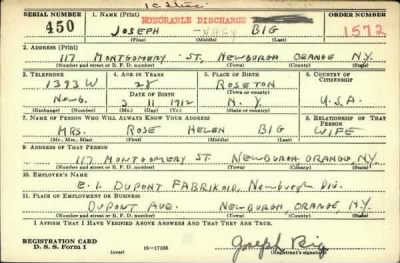 SERIAL NUMBER
450
1. NAME (Print)
HONORABLE DISCHARGE
JOSEPH - NABY BIG
(First) (Middle) (Last)
ORDER NUMBER
1572
2. ADDRESS (Print)
117 MONTGOMERY ST. NEWBURGH ORANGE N.Y.
(Number and street or R. F. D. number) (Town) (County) (State)
3. TELEPHONE
1393 W
NEWB.
(Exchange) (Number)
4. AGE IN YEARS
28
DATE OF BIRTH
2 11 1912
(Mo.) (Day) (Yr.)
5. PLACE OF BIRTH
ROSETON
(Town or county)
N.Y.
(State or country)
6. COUNTRY OF CITIZENSHIP
U.S.A.
7. NAME OF PERSON WHO WILL ALWAYS KNOW YOUR ADDRESS
MRS. ROSE HELEN BIG
(Mr., Mrs., Miss) (First) (Middle) (Last)
8. RELATIONSHIP OF THAT PERSON
WIFE
9. ADDRESS OF THAT PERSON
117 MONTGOMERY ST. NEWBURGH ORANGE, N.Y.
(Number and street or R. F. D. number) (Town) (County) (State)
10. EMPLOYER'S NAME
E. I. DUPONT FABRIKOID, Newburgh Div.
11. PLACE OF EMPLOYMENT OR BUSINESS
DUPONT AVE. NEWBURGH ORANGE, N.Y.
(Number and street or R. F. D. number) (Town) (County) (State)
I AFFIRM THAT I HAVE VERIFIED ABOVE ANSWERS AND THAT THEY ARE TRUE.
REGISTRATION CARD
D. S. S. Form 1
(over)
16—17105
Joseph Big
(Registrant's signature)